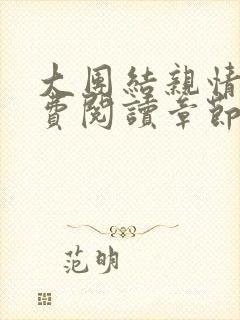 大團結親情
費閱讀章節
范明